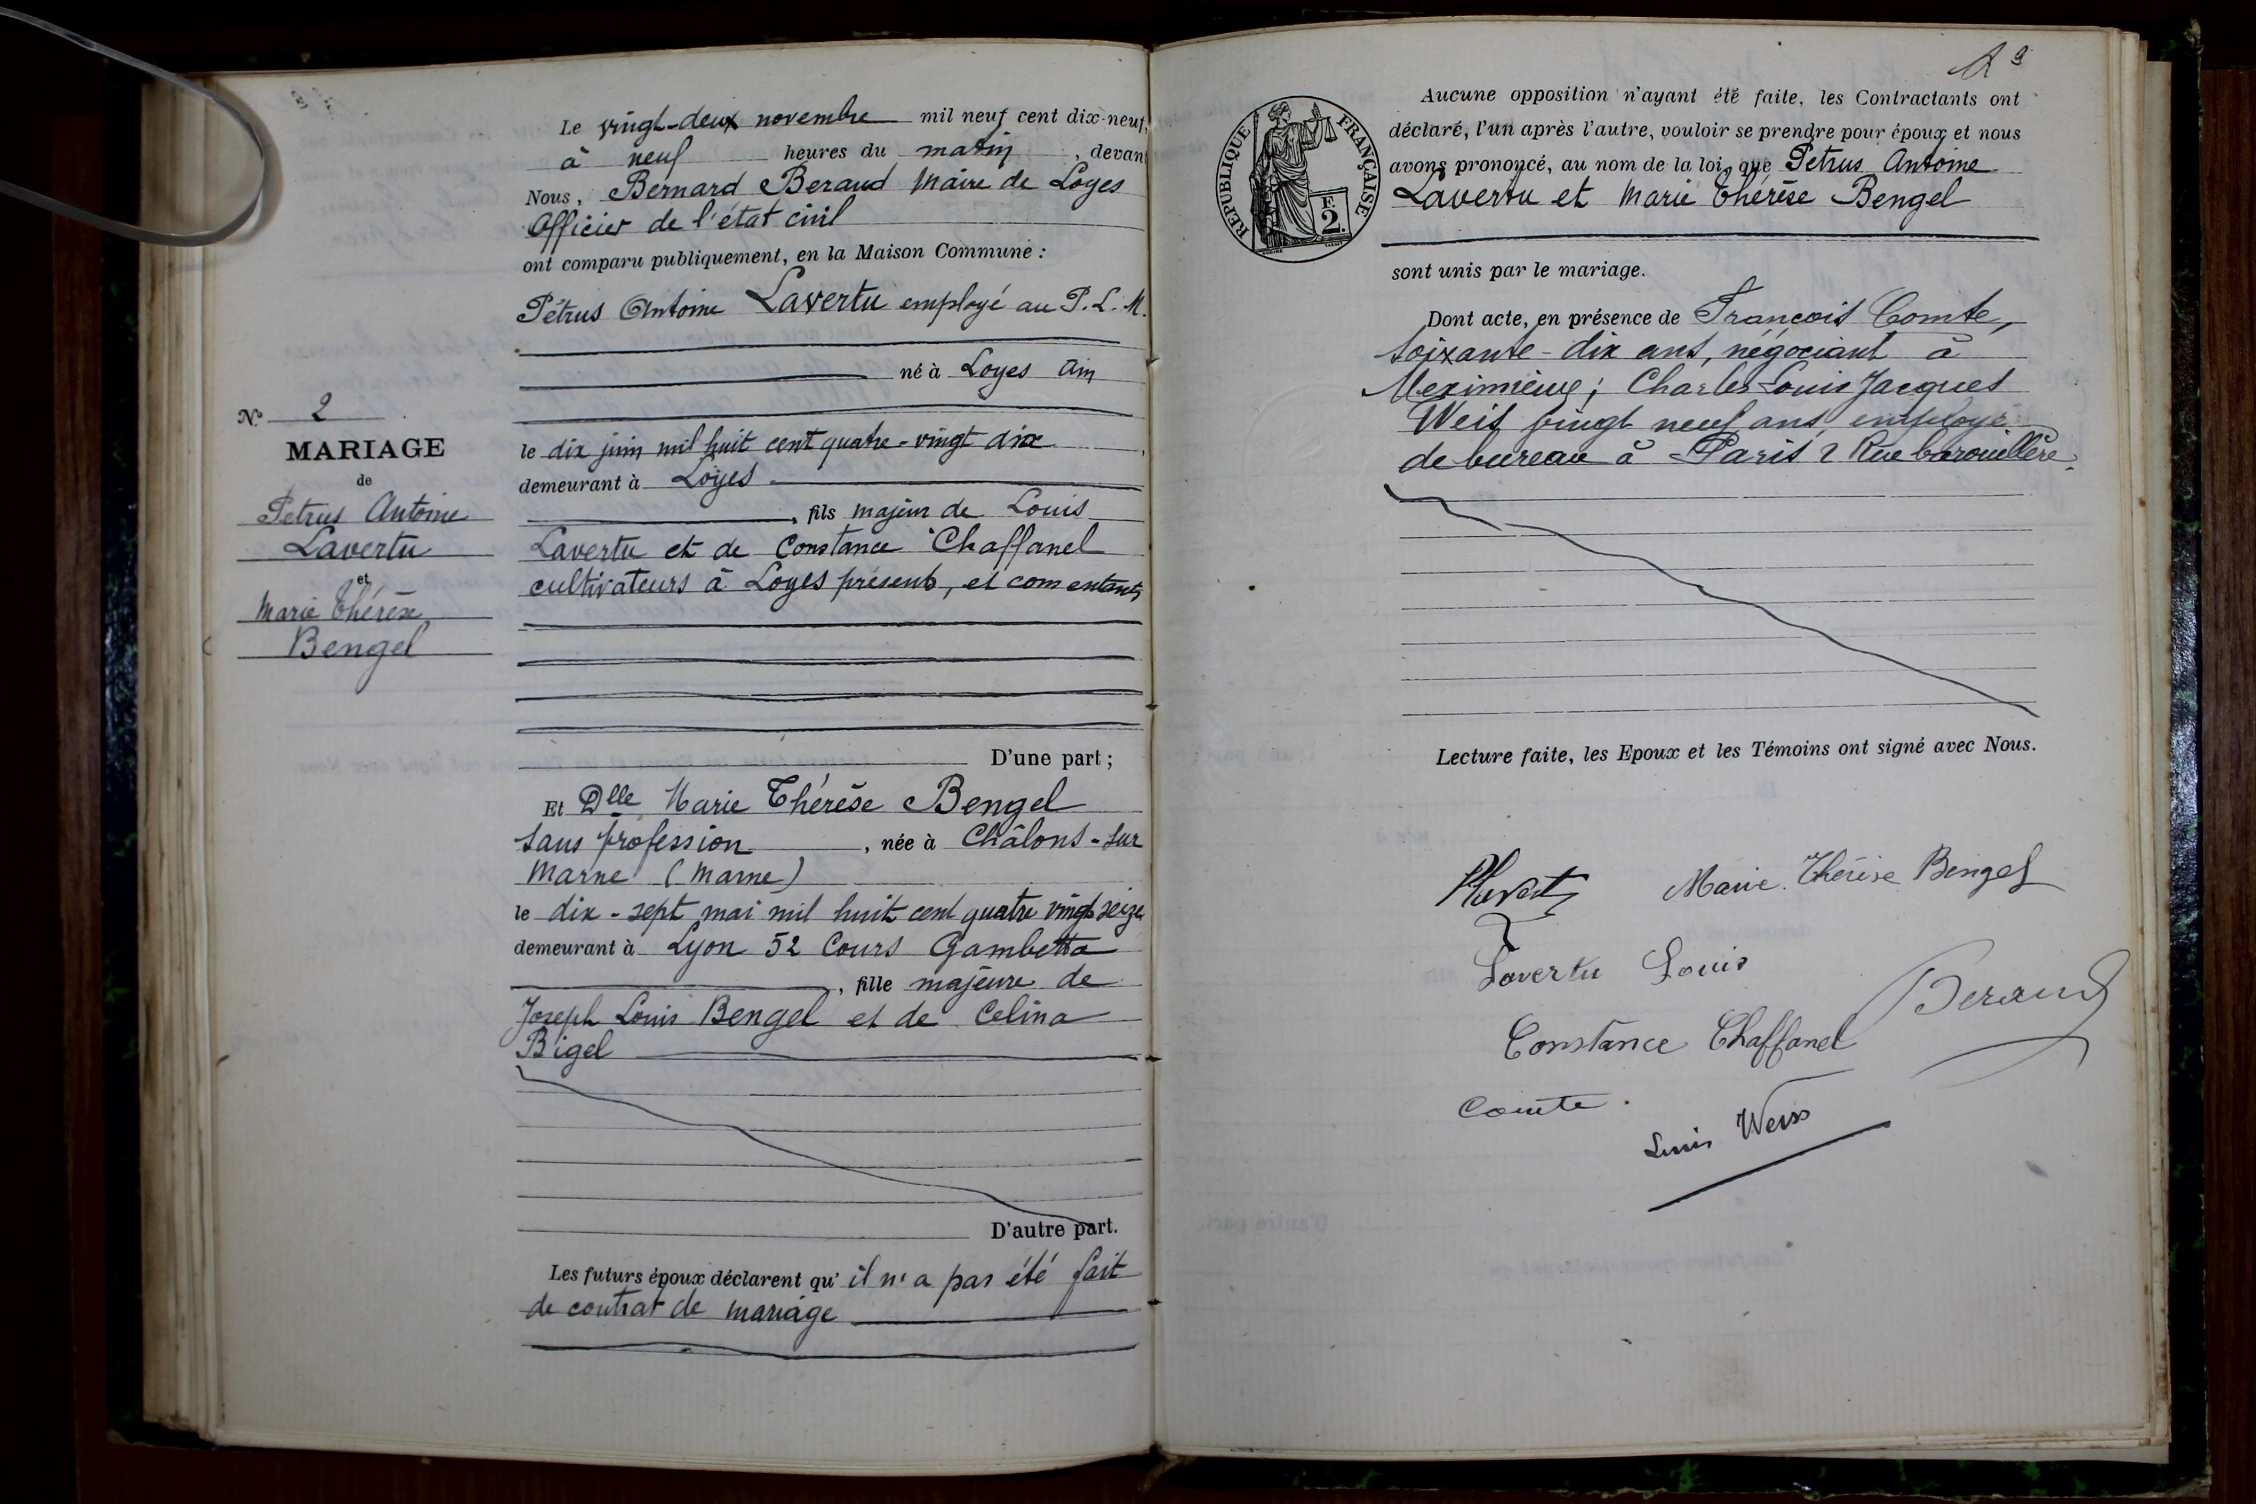 Le vingt-deux novembre mil neuf cent dix-neuf,
à neuf heures du matin, devant
Nous, Bernard Beraud Maire de Loyes
Officier de l'état civil
ont comparu publiquement, en la Maison Commune :
Pétrus Antoine Lavertu employé au P.L.M.
né à Loyes Ain
le dix juin mil huit cent quatre-vingt dix
demeurant à Loyes
, fils majeur de Louis
Lavertu et de Constance Chaffanel
cultivateurs à Loyes présents, et consentants
D'une part ;
Et Dlle Marie Thérèse Bengel
sans profession, née à Châlons-sur
Marne (Marne)
le dix-sept mai mil huit cent quatre vingt seize
demeurant à Lyon 52 Cours Gambetta
, fille majeure de
Joseph Louis Bengel et de Celina
Bigel
D'autre part.
Les futurs époux déclarent qu'il n'a pas été fait
de contrat de mariage
No 2
MARIAGE
de
Petrus Antoine
Lavertu
et
Marie Thérèse
Bengel
RÉPUBLIQUE FRANÇAISE
F.
2.
Aucune opposition n'ayant été faite, les Contractants ont
déclaré, l'un après l'autre, vouloir se prendre pour époux et nous
avons prononcé, au nom de la loi, que Pétrus Antoine
Lavertu et Marie Thérèse Bengel
sont unis par le mariage.
Dont acte, en présence de François Comte,
soixante-dix ans, négociant à
Meximieux ; Charles Louis Jacques
Weis vingt neuf ans employé
de bureau à Paris 2 Rue barouillère.
Lecture faite, les Epoux et les Témoins ont signé avec Nous.
Marie Thérèse Bengel
Lavertu Louis
Beraud
Constance Chaffanel
Comte.
Louis Weiss